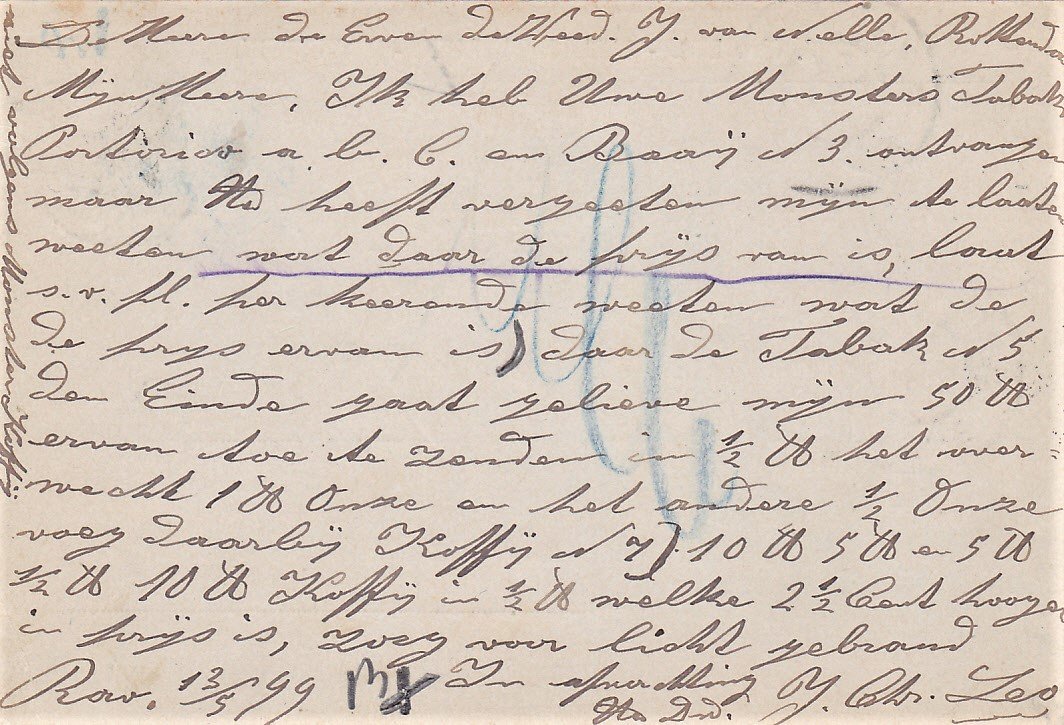 De Heere de Erven de Weed. J. van Nelle, Rotterdam
Mijn Heere, Ik heb Uwe Monsters Tabak
Portorico a. b. C. en Baaij N 3. ontvangen
maar Ued heeft vergeeten mijn te laate
weeten wat daar de prijs van is, laat
s. v. pl. per keerende weeten wat de
de prys ervan is) daar de Tabak N 5
den Einde gaat gelieve mijn 50 ℔
ervan toe te zenden in ½ ℔ het over=
wecht 1 ℔ Onze en het andere ½ Onze
voeg daarbij Koffij N 7) 10 ℔ 5 ℔ en 5 ℔
½ ℔ 10 ℔ Koffij in ½ ℔ welke 2 ½ Cent hooger
in prijs is, zorg voor licht gebrand
Rav. 13/5 99 In afwachting J. Chr. Leo
Ued Dw.
Monsters Koffij